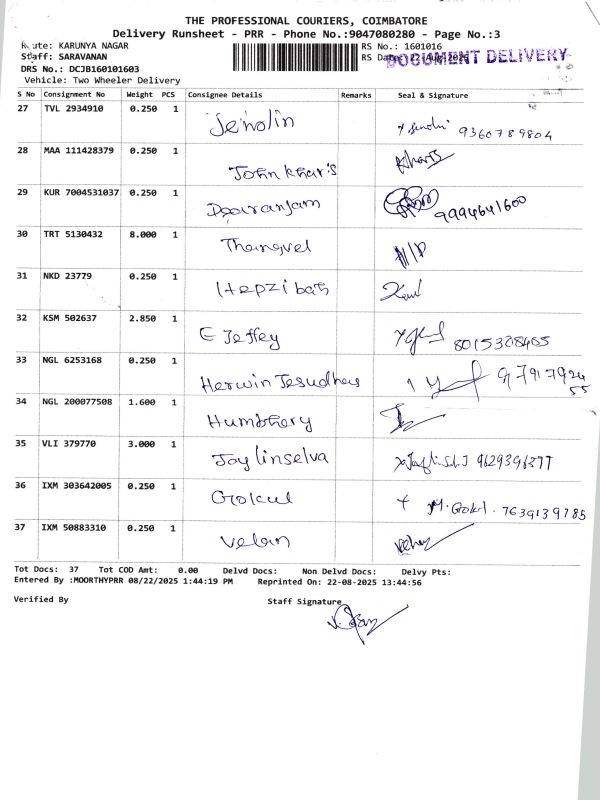 THE PROFESSIONAL COURIERS, COIMBATORE
Delivery Runsheet - PRR - Phone No.:9047080280 - Page No.:3
Route: KARUNYA NAGAR RS No.: 1601016
Staff: SARAVANAN RS Date: 22-Aug-2025
DOCUMENT DELIVERY
DRS No.: DCJB160101603
Vehicle: Two Wheeler Delivery
S No Consignment No Weight PCS Consignee Details Remarks Seal & Signature
27 TVL 2934910 0.250 1 Jenolin 9360789804
28 MAA 111428379 0.250 1 John Kharis
29 KUR 7004531037 0.250 1 9994641600
30 TRT 5130432 8.000 1 Thangvel
31 NKD 23779 0.250 1 Hepzibah
32 KSM 502637 2.850 1 E Jeffey 8015328465
33 NGL 6253168 0.250 1 Herwin Jesudhas
34 NGL 200077508 1.600 1 Humbhery
35 VLI 379770 3.000 1 Jaylinselva 9629396377
36 IXM 303642005 0.250 1 Gokul M. Gokul. 7639139785
37 IXM 50883310 0.250 1 Velan
Tot Docs: 37 Tot COD Amt: 0.00 Delvd Docs: Non Delvd Docs: Delvy Pts:
Entered By :MOORTHYPRR 08/22/2025 1:44:19 PM Reprinted On: 22-08-2025 13:44:56
Verified By Staff Signature